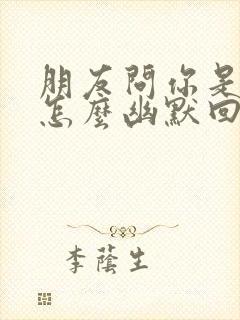 朋友問你是
怎麼幽默回
李蔭生